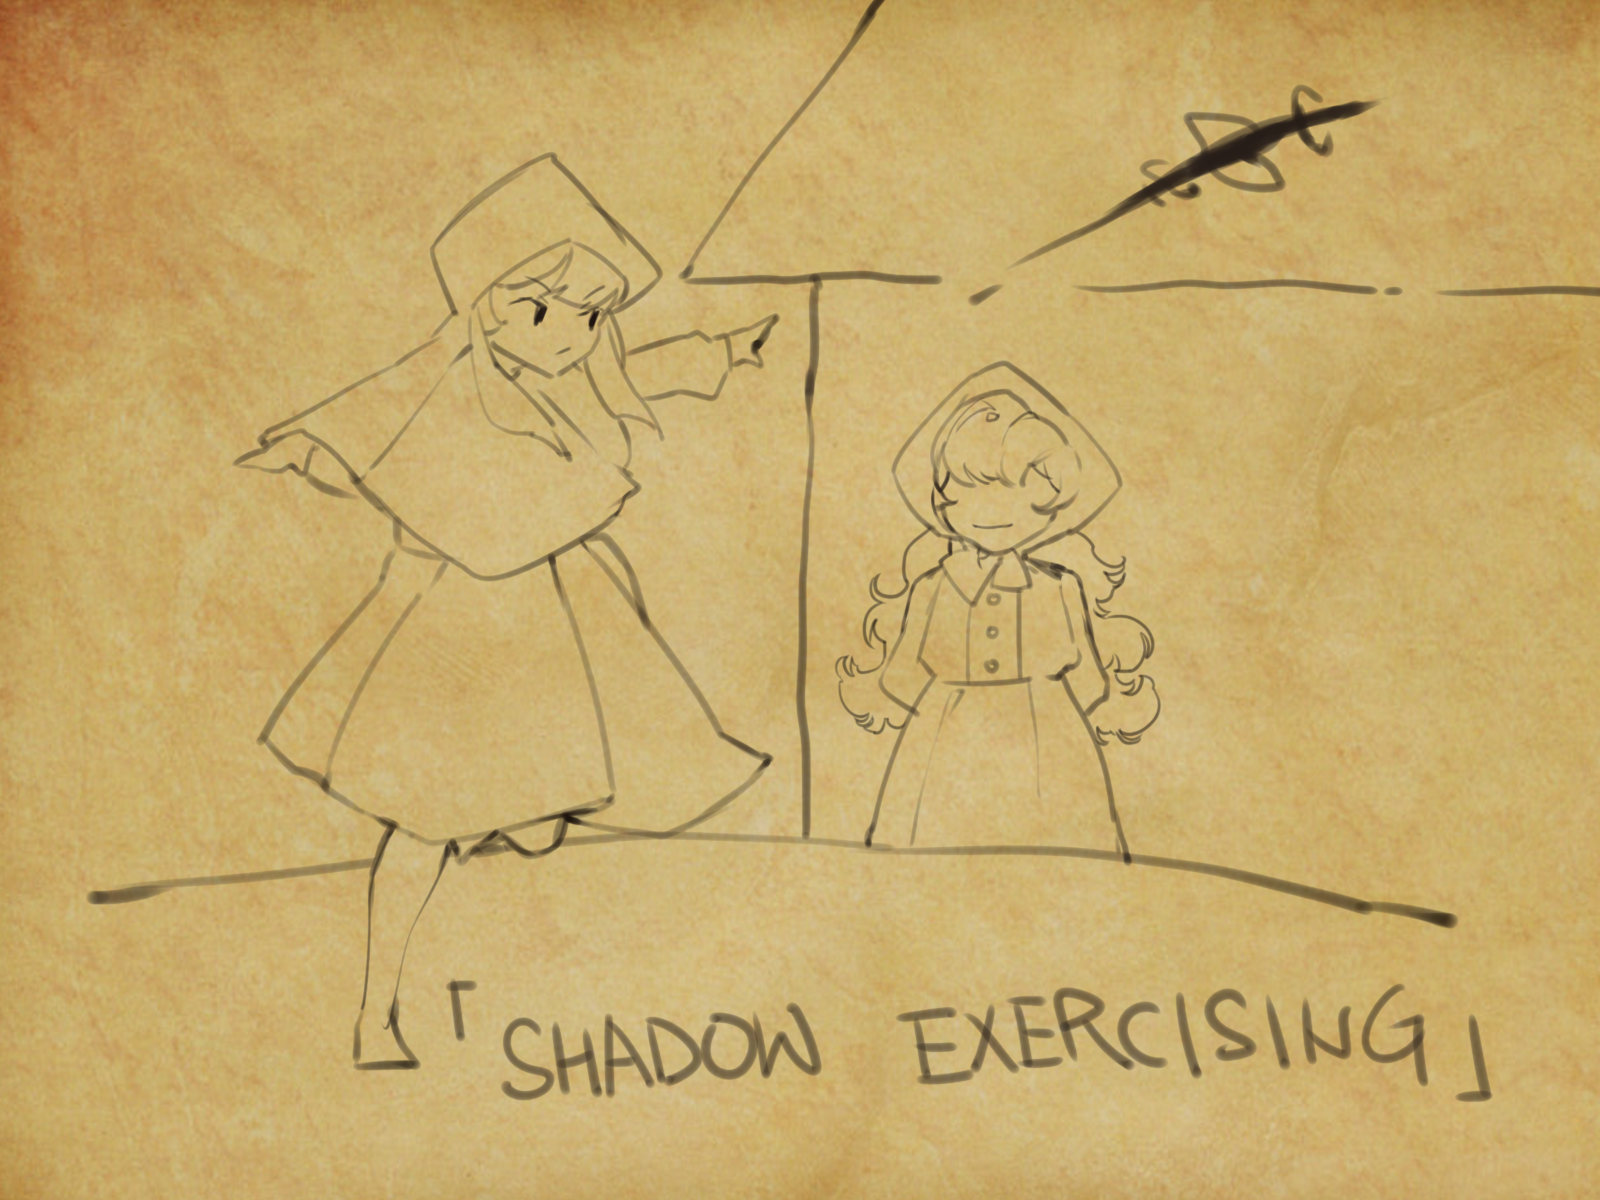 「SHADOW EXERCISING」